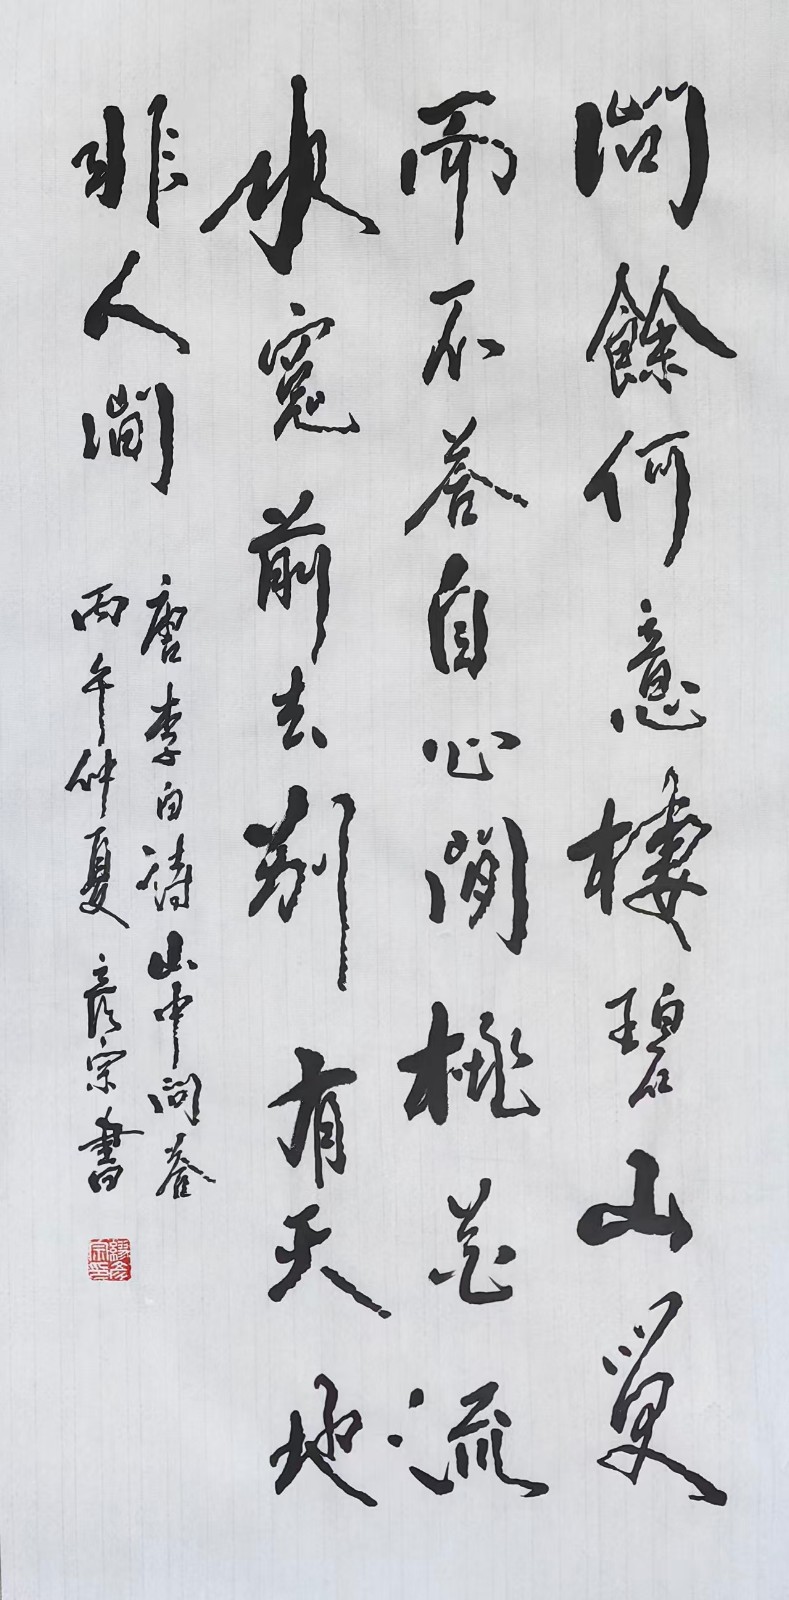 問餘何意棲碧山笑
而不答自心閒桃花流
水前去別有天地
非人間
唐李白詩山中問答
丙午仲夏彥宗書